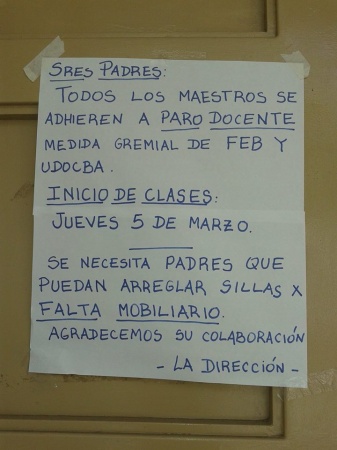 SRES PADRES:
TODOS LOS MAESTROS SE
ADHIEREN A PARO DOCENTE
MEDIDA GREMIAL DE FEB Y
UDOCBA.
INICIO DE CLASES:
JUEVES 5 DE MARZO.
SE NECESITA PADRES QUE
PUEDAN ARREGLAR SILLAS X
FALTA MOBILIARIO.
AGRADECEMOS SU COLABORACIÓN
- LA DIRECCIÓN -